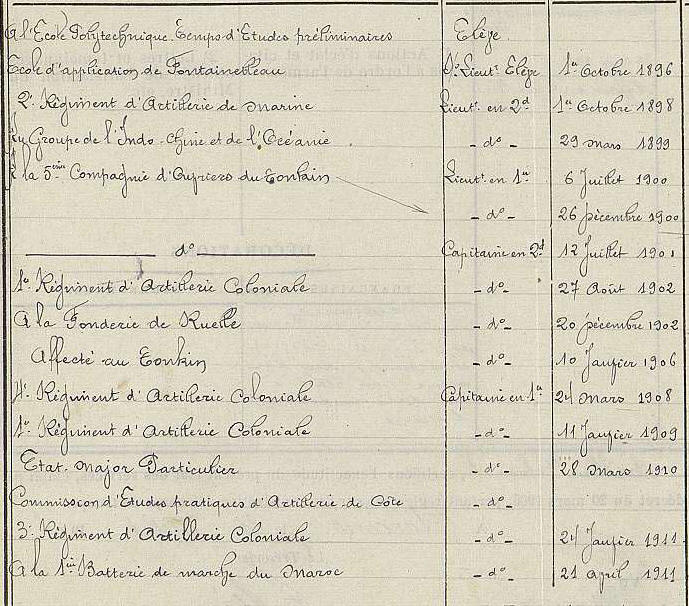 A l'Ecole Polytechnique. Temps d'Etudes préliminaires Elève.
Ecole d'application de Fontainebleau S. Lieut. Elève 1er Octobre 1896
2e Régiment d'Artillerie de marine Lieut. en 2d 1er Octobre 1898
Au Groupe de l'Indo-Chine et de l'Océanie - do - 29 mars 1899
A la 5ème Compagnie d'Ouvriers du Tonkin Lieut. en 1er 6 Juillet 1900
- do - 26 Décembre 1900
do Capitaine en 2d 12 Juillet 1901
1er Régiment d'Artillerie Coloniale - do - 27 Août 1902
A la Fonderie de Ruelle - do - 20 Décembre 1902
Affecté au Tonkin - do - 10 Janvier 1906
4e Régiment d'Artillerie Coloniale Capitaine en 1er 24 mars 1908
1er Régiment d'Artillerie Coloniale - do - 11 Janvier 1909
Etat. Major Particulier - do - 28 mars 1910
Commission d'Etudes pratiques d'Artillerie de Côte - do -
3e Régiment d'Artillerie Coloniale - do - 24 Janvier 1911
A la 1ère Batterie de marche du Maroc - do - 21 avril 1911